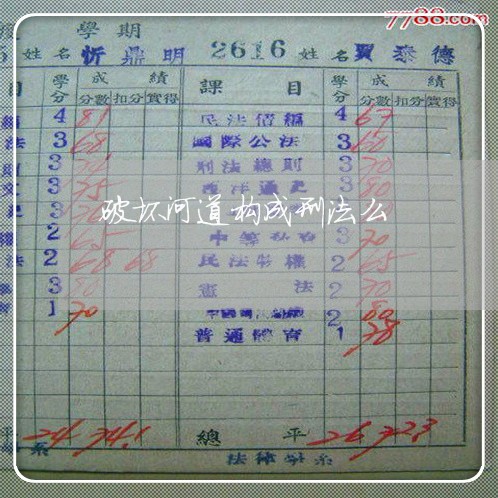 7788.com
學期
姓名 忻鼎明 2616 姓名 賈泰德
目 學分 成績 課目 學分 成績
分數 扣分 實得 分數 扣分 實得
4 81 民法債編 4 67
法 3 68 國際公法 3 60
3 刑法總則 3 70
文 3 75 西洋通史 3 80
3 3
2 65 3 70
法 2 68 68 民法物權 2 65
3 80 憲法 2 70
育 1 70 2 80
普通體育 1 78
破坏河道构成刑法么
平 24 74.1 總平 26 72.3
系 法律學系